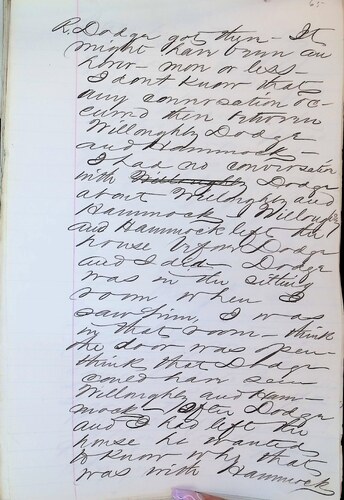 65
R. Dodge got there - It
might have been an
hour - more or less -
I dont know that
any conversation oc-
curred then between
Willoughby Dodge
and Hammock -
I had no conversation
with Willoughby Dodge
about Willoughby and
Hammock. Willoughby
and Hammock left the
house before Dodge
and I did Dodge
was in the sitting
room when I
saw him, I was
in that room - think
the door was open
think that Dodge
could have seen
Willoughby and Ham-
mock - After Dodge
and I had left the
house he wanted
to know who that
was with Hammock